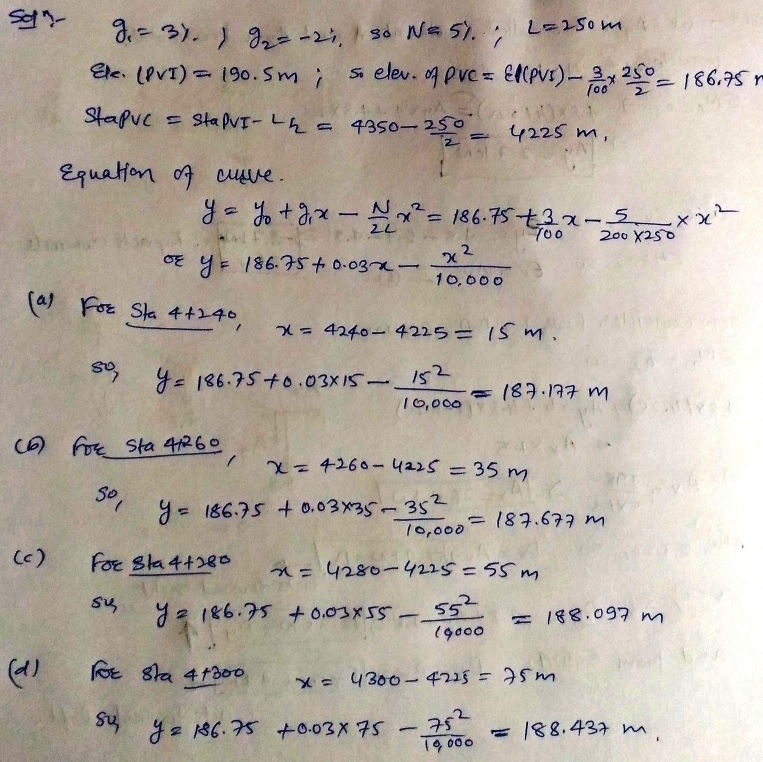 Solⁿ:- g₁ = 3%. ; g₂ = -2%. so N = 5%. ; L = 250 m
Ele. (PVI) = 190.5m ; so elev. of PVC = El(PVI) - 3/100 x 250/2 = 186.75 m
StaPVC = StaPVI - L/2 = 4350 - 250/2 = 4225 m.
Equation of curve.
y = y₀ + g₁x - N/2L x² = 186.75 + 3/100 x - 5/200x250 x x²
or y = 186.75 + 0.03x - x²/10,000
(a) For Sta 4+240, x = 4240 - 4225 = 15 m.
so, y = 186.75 + 0.03x15 - 15²/10,000 = 187.177 m
(b) For Sta 4+260, x = 4260 - 4225 = 35 m
So, y = 186.75 + 0.03x35 - 35²/10,000 = 187.677 m
(c) For Sta 4+280 x = 4280 - 4225 = 55 m
so, y = 186.75 + 0.03x55 - 55²/10000 = 188.097 m
(d) For Sta 4+300 x = 4300 - 4225 = 75m
so, y = 186.75 + 0.03x75 - 75²/10,000 = 188.437 m.